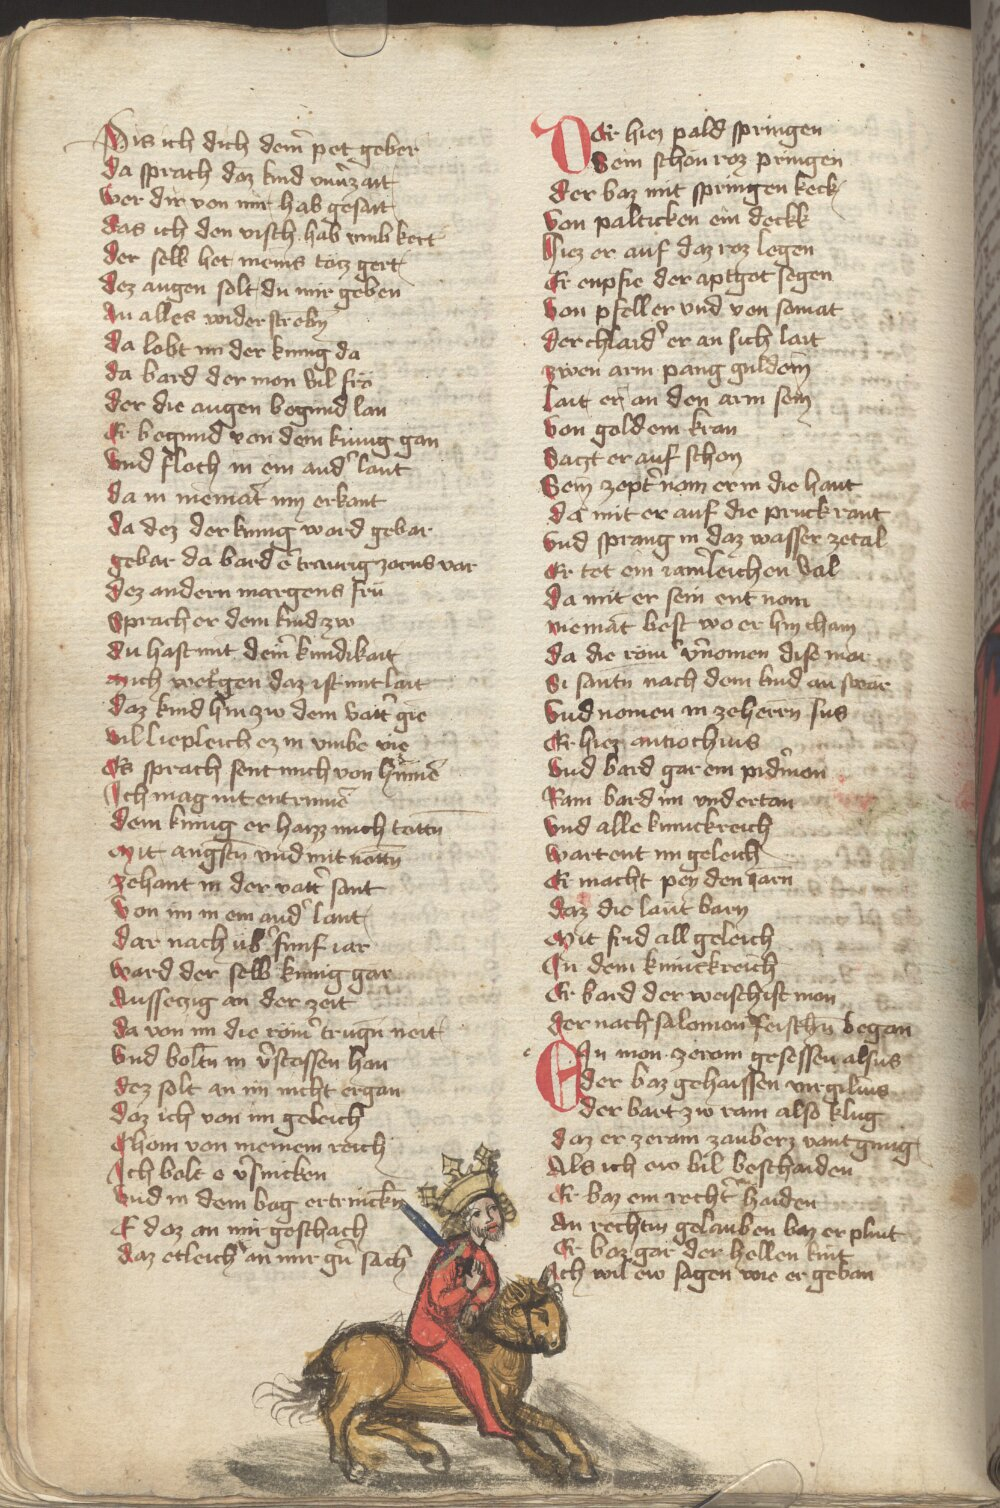 Pis ich dich dem pet geber
da sprach daz kind vnuͦzait
wer dir von mir hab gesait
das ich den visch hab vmb kert
der selb het meins totz gert
dez augen solt du mir geben
An alles wider streben
da lobt im der kunig da
da bard der mon vil fro
der die augen begund lan
Er begund von dem kunig gan
vnd floch in ein and̾ lant
da in niemat̾ nin erkant
da dez der kunig ward gebar
gebar da bard e traurig zorns var
dez andern margens fru
Sprach er dem kind zw
du hast mit dem̾ kundikait
mich betrogen daz ist mir lait
daz kind hin zw dem vatt̾ gie
vil liepleich ez in vmbe vie
Es sprach sent mich von hinnē
Ich mag nit entrinnē
dem kunig er haizz mich tottn̄
mit angstn̄ vnd mit nottn̄
zehant in der vatt̾ sant
von im in ein and̾ lant
dar nach ub̾ funf iar
ward der selb kunig gar
Aussetzig an der zeit
da von im die rom̾ trugn̄ neit
vnd boltn̄ in v̾stossen han
dez solt an im nicht ergan
daz ich von im geleich
Chom von meinem reich
Ich bolt e v̾sincken
vnd in dem bag ertrincken
E daz an mir geschach
daz etleich̾ an mir gu̾ sach
Der hiez pald springen
Sein schon roz pringen
der baz mit springen keck
von palticken ein deckk
Hiez er auf daz roz legen
Er enpfie der aptgot segen
von pfeller vnd von samat
der chlaid̾ er an sich lait
zwen arm pang guldein
lait er an den arm sein
von gold ein kran
Satzt er auf schon
Sein zept̾ nam er in die hant
da mit er auf die pruck rant
vnd sprang in daz wasser zetal
Er tet ein iam̾leichen val
da mit er sein ent nom
niemāt best wo er hin cham
da die rom̾ v̾nomen dise mar
Si santn̄ nach dem kind an swar
vnd nomen in zeherrn sus
Er hiez antiochius
vnd bard gar ein pid̾mon
Ram bard im vndertan
vnd alle kunickreich
wartent im geleich
Er macht pey den iarn
daz die laut barn
mit frid all geleich
In dem kunickreich
Er bard der weischist mon
der nach salomon reischn̄ began
Ein mon zerom gesessen alsus
der baz gehaissen virgilius
der bart zw ram also klug
daz er zeram zauberz vant gnug
Als ich ew bil beschaiden
Er baz ein recht̾ haiden
An rechtn̄ gelauben baz er plint
Er baz gar der hellen kint
Ich wil ew sagen wie er geban